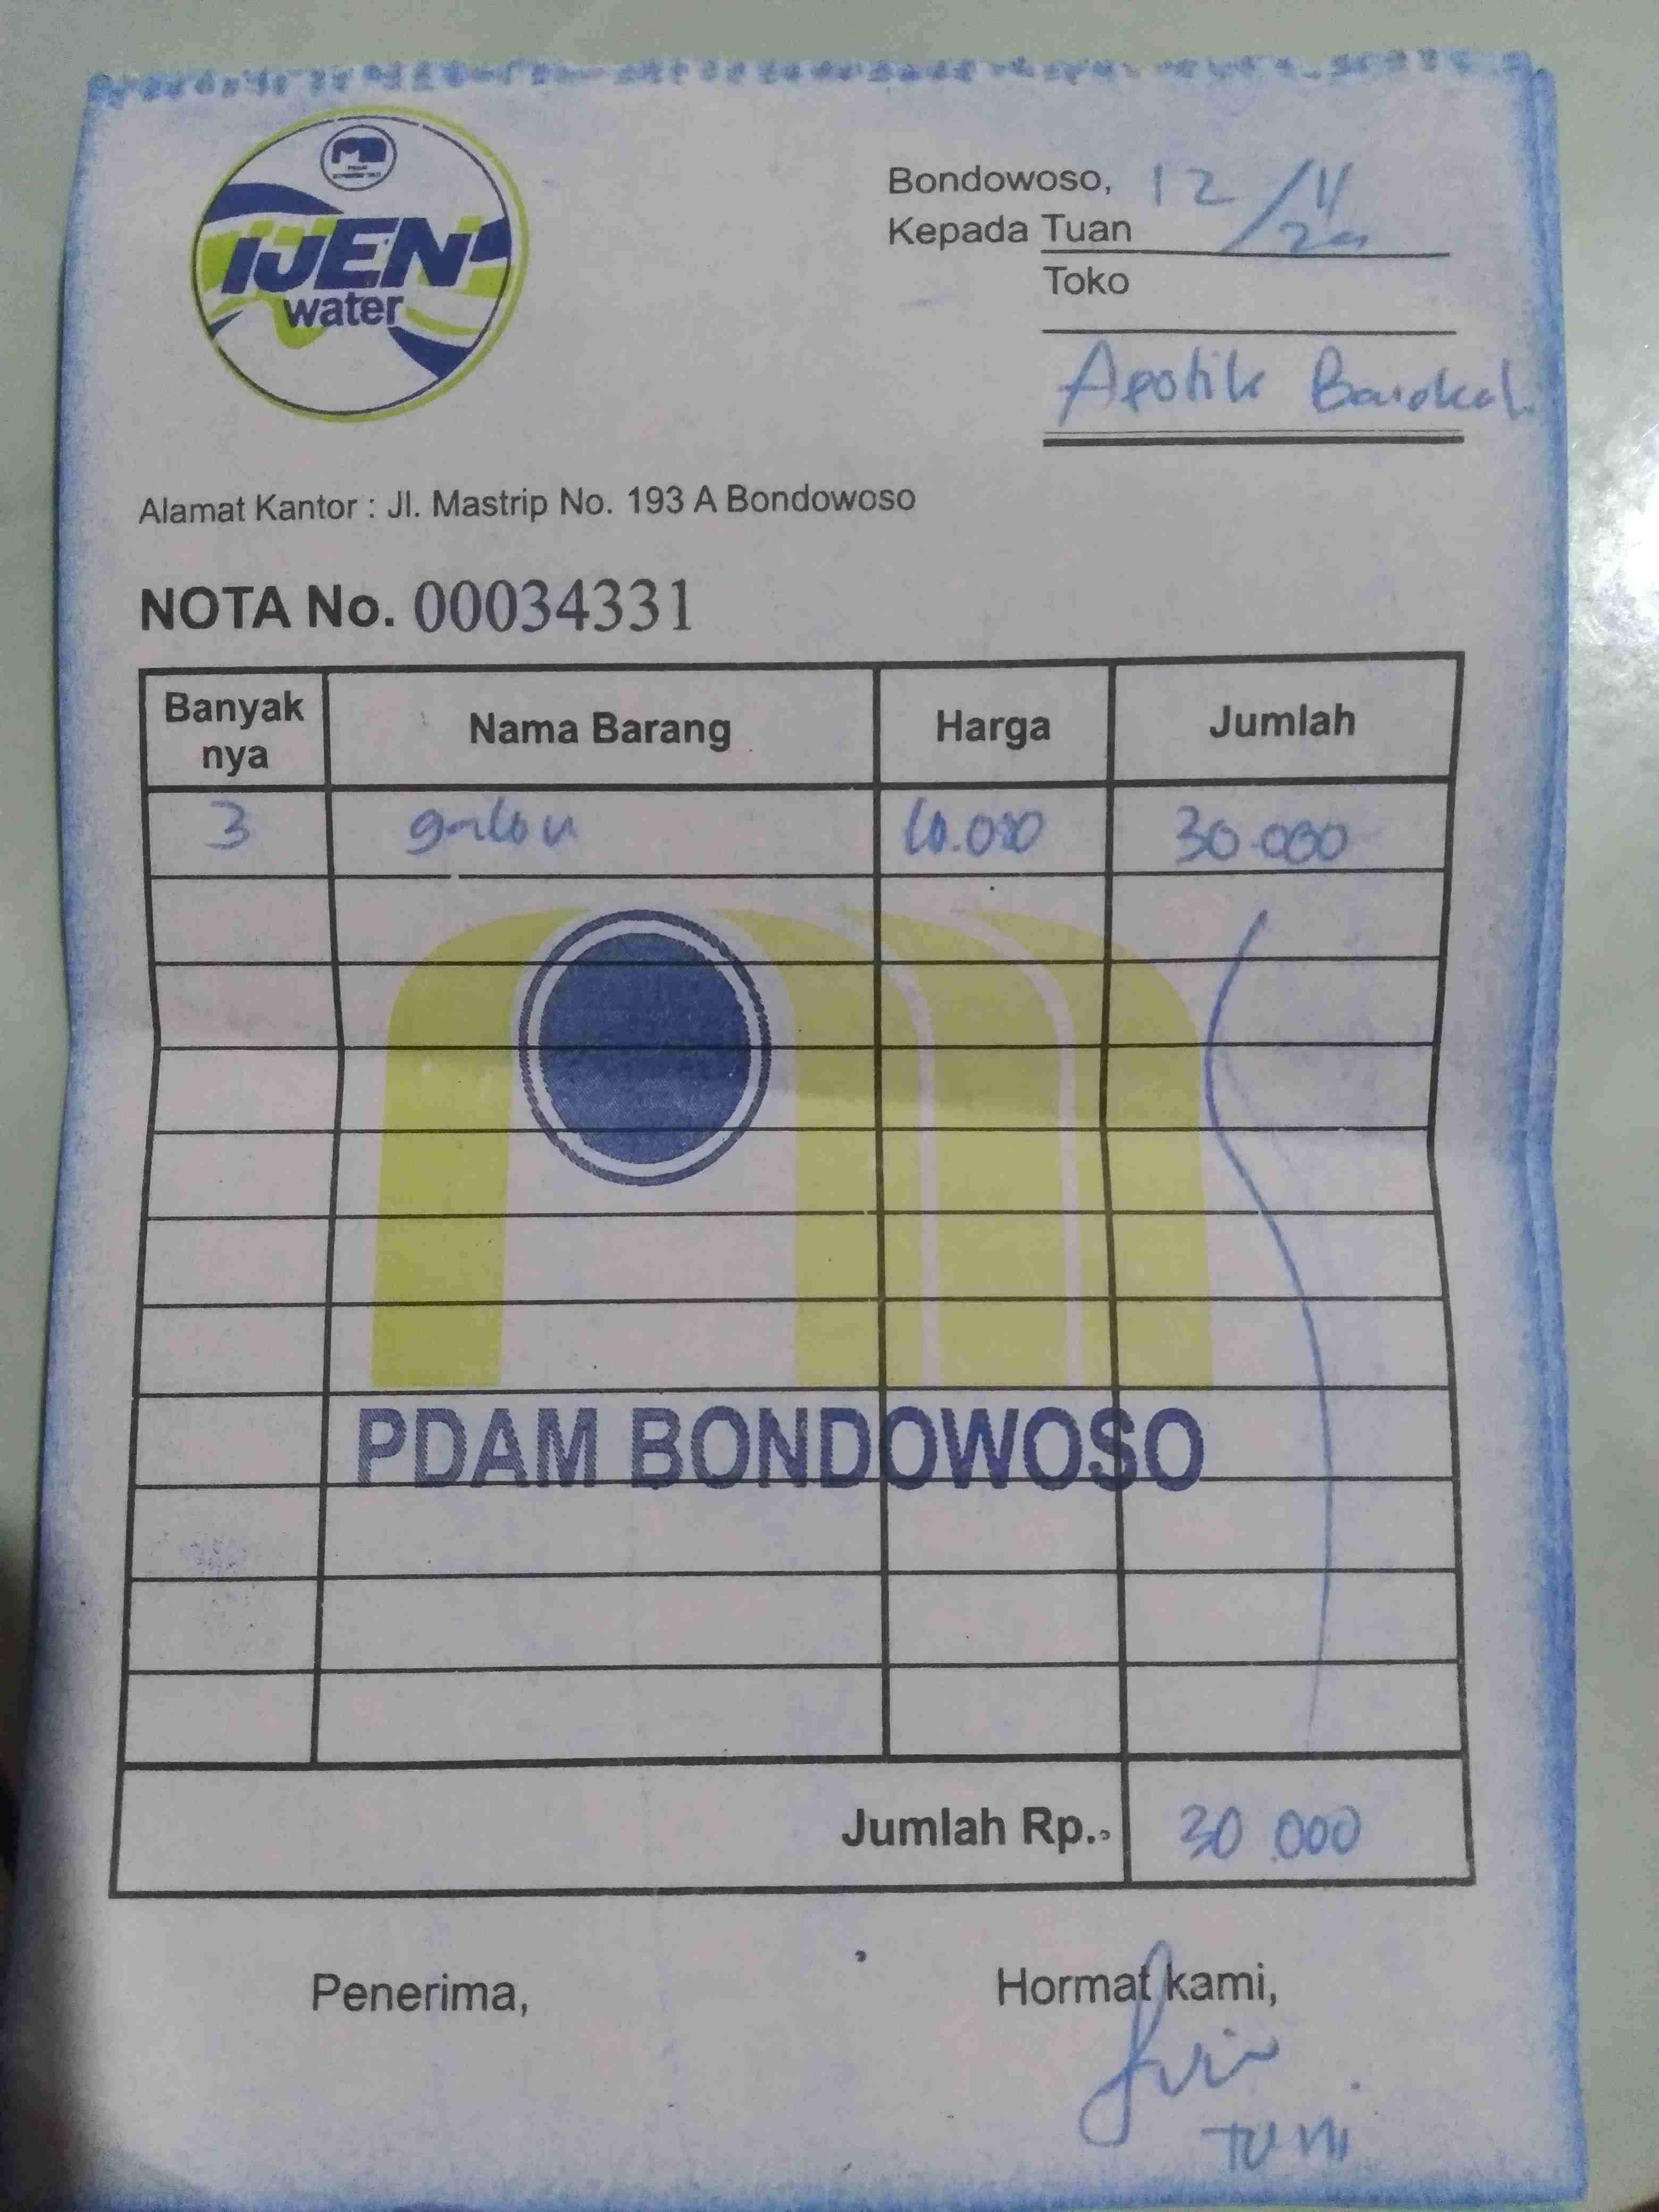 IJEN
water
Bondowoso, 12/11
Kepada Tuan
Toko
Apotik Barokah
Alamat Kantor : Jl. Mastrip No. 193 A Bondowoso
NOTA No. 00034331
Banyak nya Nama Barang Harga Jumlah
3 galon 10.000 30.000
PDAM BONDOWOSO
Jumlah Rp. 30.000
Penerima, Hormat kami,